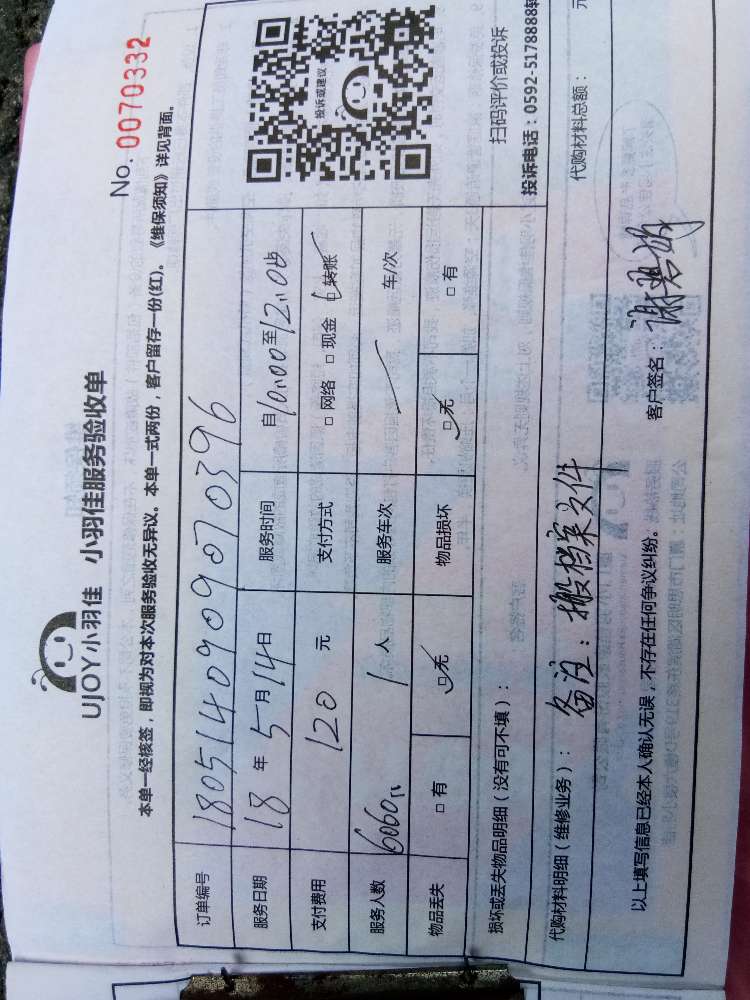 UJOY小羽佳 小羽佳服务验收单
No. 0070332
本单一经核签，即视为对本次服务验收无异议。本单一式两份，客户留存一份(红)。《维保须知》详见背面。
订单编号 1805140909070396
服务日期 18 年 5 月 14 日 服务时间 自 10:00 至 12:00
支付费用 120 元 支付方式 □网络 □现金 □转账
服务人数 1 人 服务车次 车/次
物品丢失 □有 □无 物品损坏 □无 □有
投诉或建议
扫码评价或投诉
投诉电话：0592-5178888转
损坏或丢失物品明细（没有可不填）：
代购材料明细（维修业务）： 代购材料总额： 元
备注：搬档案文件
以上填写信息已经本人确认无误，不存在任何争议纠纷。 客户签名：